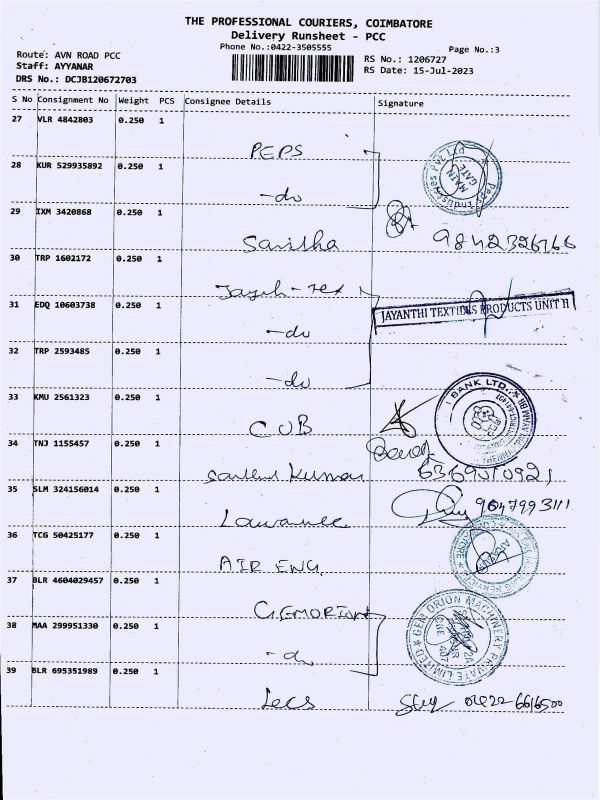 THE PROFESSIONAL COURIERS, COIMBATORE
Delivery Runsheet - PCC
Phone No.:0422-3505555
Page No.:3
Route: AVN ROAD PCC
Staff: AYYANAR
DRS No.: DCJB120672703
RS No.: 1206727
RS Date: 15-Jul-2023
S No Consignment No Weight PCS Consignee Details Signature
27 VLR 4842803 0.250 1
PEPS
28 KUR 529935892 0.250 1
-do
Peps Industries PVT LTD
MAIN GATE
29 IXM 3420868 0.250 1
Saritha 9842326766
30 TRP 1602172 0.250 1
31 EDQ 10603738 0.250 1
JAYANTHI TEXTILES PRODUCTS UNIT II
-do
32 TRP 2593485 0.250 1
-do
33 KMU 2561323 0.250 1
BANK LTD.,
CUB
34 TNJ 1155457 0.250 1
Kumar
35 SLM 324156014 0.250 1
9047993111
36 TCG 50425177 0.250 1
AIR ENG.
37 BLR 4604029457 0.250 1
GEMORION
38 MAA 299951330 0.250 1
GEM ORION MACHINERY PRIVATE LIMITED
-do
39 BLR 695351989 0.250 1
Lecs 0422-6616500